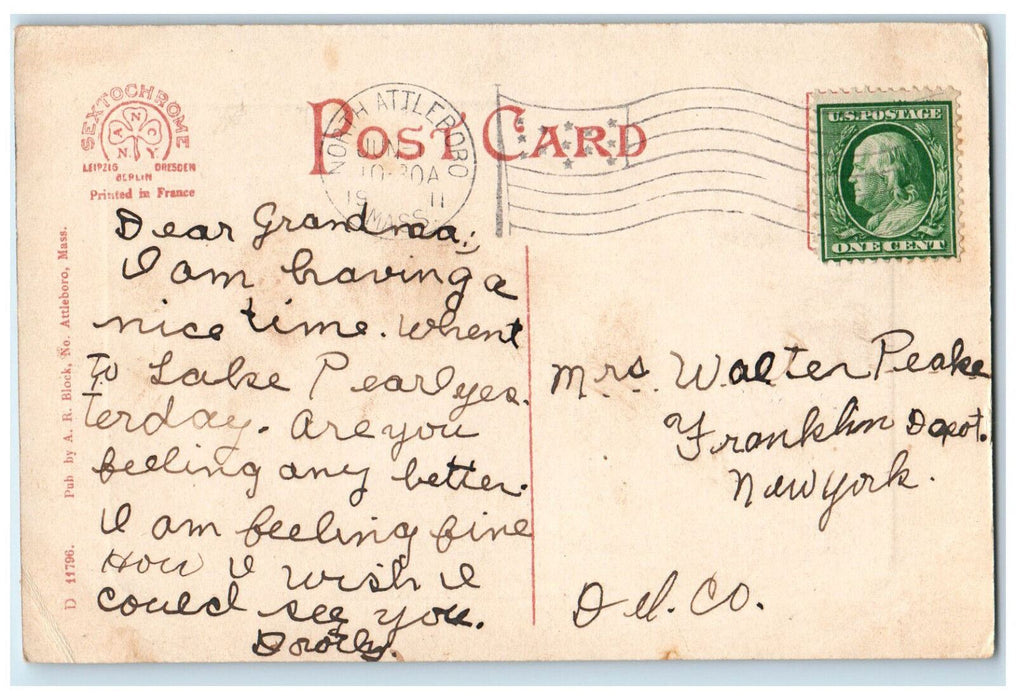 SEXTOCHROME
A N C
N. Y.
LEIPZIG DRESDEN
BERLIN
Printed in France
POST CARD
NORTH ATTLEBORO
JUN
10-30A
19 11
MASS.
U.S. POSTAGE
ONE CENT
D 11796. Pub by A. R. Block, No. Attleboro, Mass.
Dear Grandmaa;
I am having a
nice time. Whent
To Lake Pearl yes.
terday. Are you
feeling any better.
I am feeling fine
How I wish I
could see you.
Mrs. Walter Peake
Franklin Depot.
New york.
Del. Co.